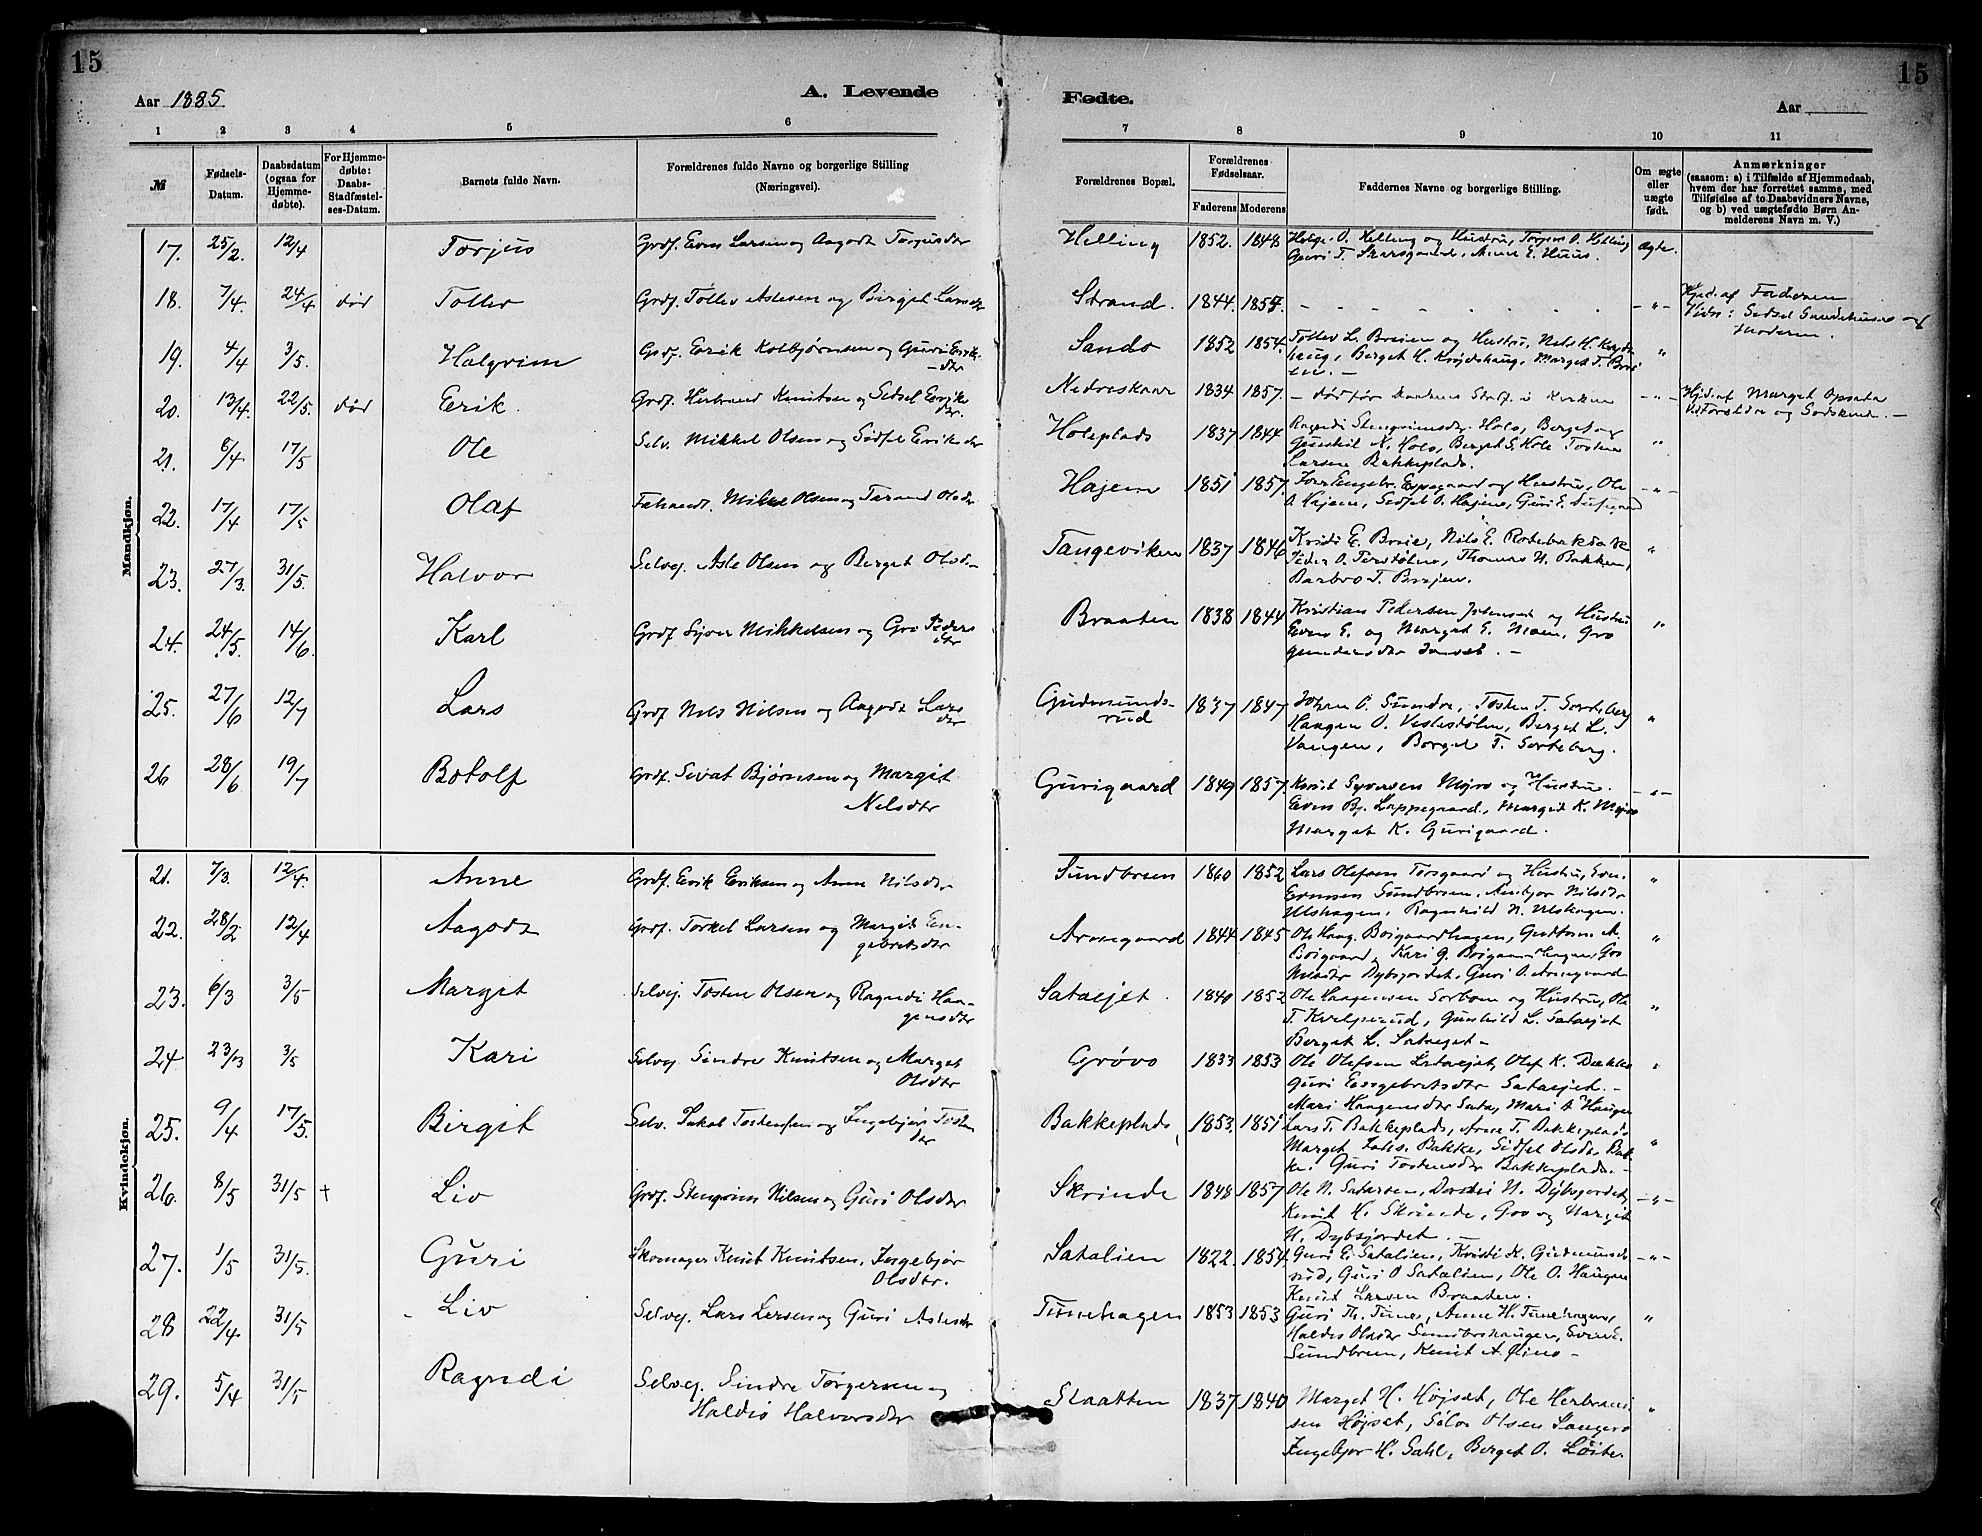 15
15
Aar 1885.
A. Levende
Fødte.
Aar
1 2 3 4 5 6 7 8 9 10 11
№
Fødsels-
Datum.
Daabsdatum
(ogsaa for
Hjemme-
døbte).
For Hjemme-
døbte:
Daabs-
Stadfæstel-
ses-Datum.
Barnets fulde Navn.
Forældrenes fulde Navne og borgerlige Stilling
(Næringsvei).
Forældrenes Bopæl.
Forældrenes
Fødselsaar.
Faderens Moderens
Faddernes Navne og borgerlige Stilling.
Om ægte
eller
uægte
født.
Anmærkninger
(saasom: a) i Tilfælde af Hjemmedaab,
hvem der har forrettet samme, med
Tilføielse af to Daabsvidners Navne,
og b) ved uægtefødte Børn An-
melderens Navn m. V.)
Mandkjøn.
17. 25/2. 12/4 Torjus Grdf. Even Larsen og Aagodt Torjusdtr Helling 1852. 1848 Helge O. Helling og Hustru, Torjus O. Helling Ægte.
Guri T. Skarsgaard, Anne E. Huus.
18. 7/4. 24/4 død Tollev Grdf. Tollev Aslesen og Birget Larsdtr Strand. 1844. 1857. - " - Hjd. af Faderen
Vidn: Sedsel Sundehuset og
Moderen.
19. 4/4 3/5. Halgrim Grdf. Erik Kolbjørnsen og Guri Erik-
dtr Sando 1852 1854. Tollev L. Breien og Hustru, Nils H. "
haug, Berget H. Marget T. Brei
en. -
20. 13/4. 22/5. død Erik. Grdf. Herbrand Knutsen og Sidsel Eriks
dtr. Nedreskaar 1834 1857. - død før Daabens Stadf. i Kirken - " - Hjd. af Marget Opsata
og Godskind. -
21. 6/4 17/5 Ole Selv. Mikkel Olsen og Sidsel Eriksdtr Holeplads 1837 1844 Ragndi Stengrimsdtr Hols, Berget og "
Gunhil N. Hols, Berget S. Hole Tosten
Larsen Bakkeplads.
22. 17/4 17/5 Olaf Mikkel Olsen og Tarand Olsdtr Hagem 1851 1857. Engebr. Espegaard og Hustru, Ole - " -
O. Hagem, Sedsel O. Hagen, Guri E.
23. 27/3. 31/5. Halvor Selvej. Asle Olsen og Berget Olsdtr Tangeviken 1837 1846 Kristi E. Breie, Nils E. "
Peder O. Thomas H. Bakken,
Barbro T. Breien.
24. 24/5. 14/6. Karl Grdf Syver Mikkelsen og Gro Peders
dtr Braaten 1838 1844 Kristian Pedersen og Hustru "
Even E. og Marget E. Moen, Gro
25. 27/6 12/7 Lars Grdf Nils Nilsen og Aagodt Lars
dtr Gudmunds-
rud 1837 1847 Johan O. Sundre, Tosten T. Sorteberg "
Haagen O. Vestestølen, Berget L.
Haugen, Borget T. Sorteberg.
26 28/6 19/7 Botolf Grdf. Sivat Bjørnsen og Margit
Nilsdtr Gurigaard 1849 1857. Knut Syversen Mejro og Hustru. - " -
Even Bj. Lappegaard, Margit K. Mejro
Marget K. Gurigaard.
Kvindekjøn.
21. 7/3. 12/4. Anne Grdf. Erik Eriksen og Anne Nilsdtr Sundbreen 1860 1852 Lars Olefsen Torsgaard og Hustru, Even "
Evensen Sundbreen, Anbjør Nilsdtr
Ulshagen, Ragnhild N. Ulshagen.
22. 28/2 12/4 Aagodt Grdf. Torkel Larsen og Margit En-
gebretsdtr Arnegaard 1844 1845 Ole Haag. Boigaardhagen, Guttorm A. "
Boigaard, Kari G. Boigaardhagen, Gro
Dybsjordet, Guri O. Arnegaard
23. 6/3 3/5 Marget Selvej. Tosten Olsen og Ragndi Haa-
gensdtr Sataejet. 1840 1852 Ole Haagensen Sorbøen og Hustru, Ole "
T. Kvelprud, Gunhild L. Sataejet
Berget L. Sataejet -
24 23/3 3/5 Kari Selvej. Sindre Knutsen og Marget
Olsdtr Grøvo 1833 1853 Ole Olefsen Sataejet, Olef K. Dækko "
Guri Engebretsdtr Sataejet. -
Mari Haagensdtr Sata, Mari A Haugen
25. 9/4 17/5. Birgit Selv. Jakob Tostensen og Ingebjør Tosten
dtr Bakkeplads, 1853. 1851 Lars T. Bakkeplads, Arne T. Bakkeplads "
Marget Jak. Bakke, Sidsel Olsdtr Bak-
ke. Guri Tostensdtr Bakkeplads. -
26. 8/5 31/5 + Liv Grdf. Stengrim Nilsen og Guri Olsdtr Skrinde 1848 1857 Ole N. Dorthi N. Dybsjordet, - " -
Knut H. Skrinde, Gro og Margit
H. Dybsjordet. -
27. 1/5 31/5. Guri Skomager Knut Knutsen, Ingebjør
Olsdtr. Satalien 1822. 1854. Guri E. Satalien, Kristi K. Gudmunds- - " -
rud, Guri O Satalien, Ole O. Haugen
Knut Larsen Braaten.
28 22/4 31/5 Liv Selvej. Lars Larsen og Guri Aslesdtr Tunehagen 1853 1853 Guri Th. Tunes, Anne H. Tunehagen, "
Haldis Olsdtr Sundbrehaugen, Even E.
Sundbreen, Knut A.
29. 5/4 31/5 Ragndi Selvej. Sindre Torgersen og
Haldis Halvorsdtr Slaatten 1837 1840 Marget H. Højset, Ole Herbrand "
sen Højset, Olsen
Ingebjør H. Sahl, Berget O.